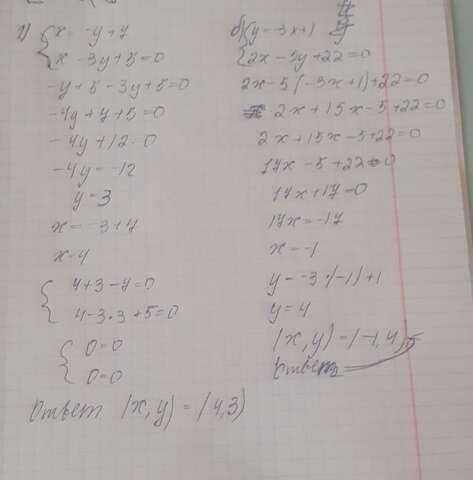 г) { x = -y+7
x - 3y+5=0
-y+5-3y+5=0
-4y+7+5=0
-4y+12=0
-4y=-12
y=3
x=-3+7
x=4
{ 4+3-7=0
4-3·3+5=0
{ 0=0
0=0
Ответ (x,y)=(4,3)
б) { y=-3x+1
2x-5y+22=0
2x-5(-3x+1)+22=0
2x+15x-5+22=0
2x+15x-5+22=0
17x-5+22=0
17x+17=0
17x=-17
x=-1
y=-3·(-1)+1
y=4
(x,y)=(-1,4)
Ответ